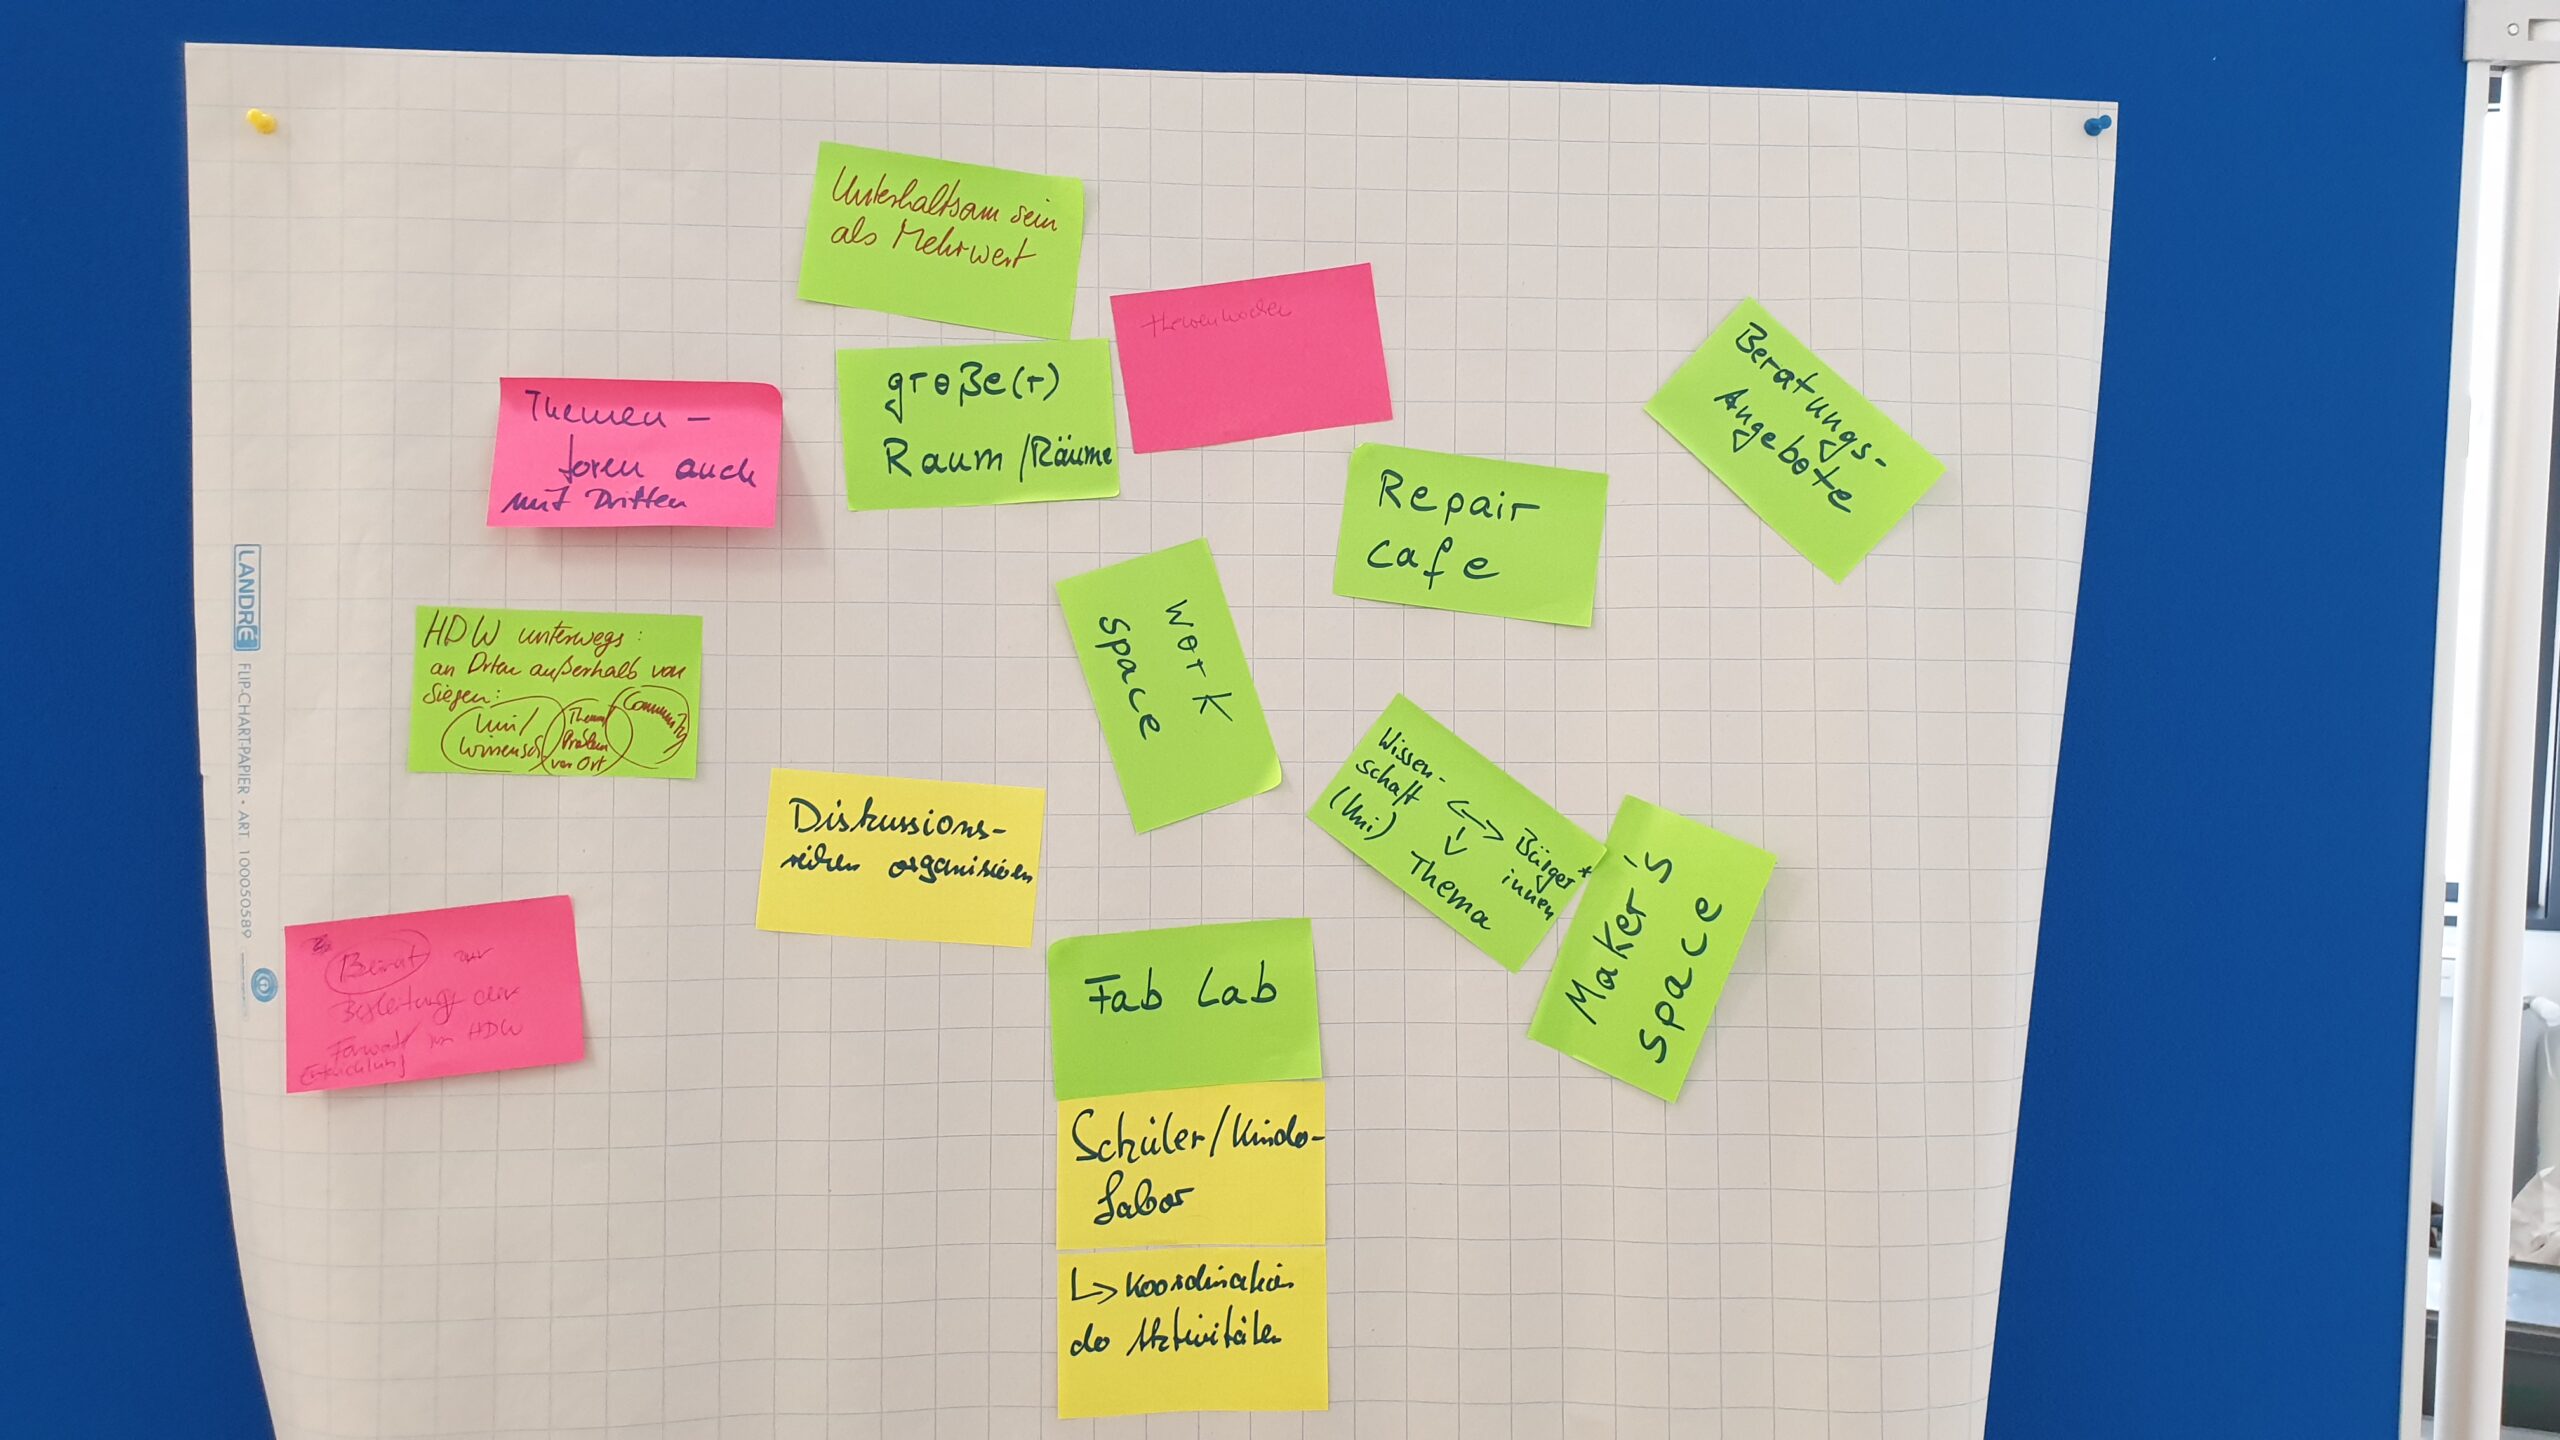 Unterhaltsam sein
als Mehrwert
Themenwochen
große(r)
Raum/Räume
Themen-
foren auch
mit Dritten
Beratungs-
Angebote
Repair
cafe
Work
space
HDW unterwegs:
an Orten außerhalb von
Siegen:
Uni/
Wissensch
Thema/
Problem
vor Ort
Community
Wissen-
schaft
(Uni)
Bürger*
innen
Thema
Maker's
space
Diskussions-
reihen organisieren
Beirat zur
Begleitung der
im HDW
Fab Lab
Schüler/Kinder-
Labor
↳ Koordination
der Aktivitäten
LANDRÉ
FLIP-CHART-PAPIER • ART 100050589